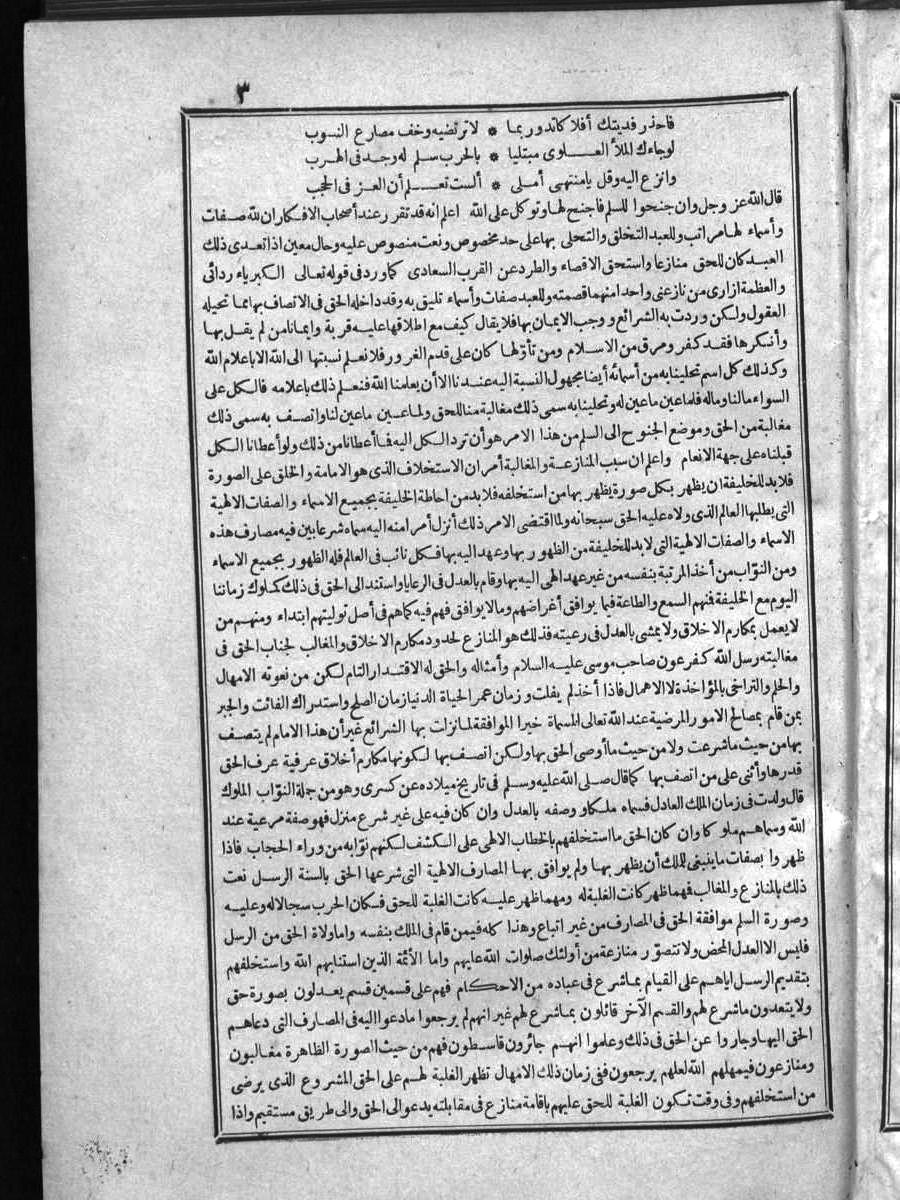 ٣
فاحذر فديتك أفلاكا تدور بما * لا ترتضيه وخف مصارع النوب
لو جاءك الملأ العـلوى مبتليا * بالحرب سلم له وجد فى الهرب
وانزع اليه وقل يا منتهى أملى * ألست تعـلم أن العـز فى الحجب
قال الله عز وجل وان جنحوا للسلم فاجنح لها وتوكل على الله اعلم انه قد تقرر عند أصحاب الافكار ان لله صفات
وأسماء لها مراتب وللعبد التخلق والتحلى بها على حد مخصوص ونعت منصوص عليه وحال معين اذا تعدى ذلك
العبد كان للحق منازعا واستحق الاقصاء والطرد عن القرب السعادى كما ورد فى قوله تعالى الكبرياء ردائى
والعظمة ازارى من نازعنى واحدا منهما قصمته وللعبد صفات وأسماء تليق به وقد داخله الحق فى الاتصاف بها مما تحيله
العقول ولكن وردت به الشرائع ووجب الايمان بها فلا يقال كيف مع اطلاقها عليه قربة وايمانا من لم يقل بها
وأنكرها فقد كفر ومرق من الاسلام ومن تأوّلها كان على قدم الغرور فلا نعلم نسبتها الى الله الا باعلام الله
وكذلك كل اسم تحلينا به من أسمائه أيضا مجهول النسبة اليه عندنا الا أن يعلمنا الله فنعلم ذلك باعلامه فالكل على
السواء مالنا وماله فلما عين ما عين له وتحلينا به سمى ذلك مغالبة منا للحق ولما عين ما عين لنا واتصف به سمى ذلك
مغالبة من الحق وموضع الجنوح الى السلم من هذا الامر هو أن ترد الكل اليه فما أعطانا من ذلك ولو أعطانا الكل
قبلناه على جهة الانعام واعلم ان سبب المنازعة والمغالبة أمران الاستخلاف الذى هو الامامة والخلق على الصورة
فلا بد للخليفة ان يظهر بكل صورة يظهر بها من استخلفه فلا بد من احاطة الخليفة بجميع الاسماء والصفات الالهية
التى يطلبها العالم الذى ولاه عليه الحق سبحانه ولما اقتضى الامر ذلك أنزل أمرا منه اليه سماه شرعا بين فيه مصارف هذه
الاسماء والصفات الالهية التى لا بد للخليفة من الظهور بها وعهد اليه بها فكل نائب فى العالم فله الظهور بجميع الاسماء
ومن النوّاب من أخذ المرتبة بنفسه من غير عهد الهى اليه بها وقام بالعدل فى الرعايا واستند الى الحق فى ذلك كملوك زماننا
اليوم مع الخليفة فمنهم السمع والطاعة فيما يوافق أغراضهم وما لا يوافق فهم فيه كما هم فى أصل توليتهم ابتداء ومنهم من
لا يعمل بمكارم الاخلاق ولا يمشى بالعدل فى رعيته فذلك هو المنازع لحدود مكارم الاخلاق والمغالب لجناب الحق فى
مغالبته رسل الله كفرعون صاحب موسى عليه السلام وأمثاله والحق له الاقتدار التام لكن من نعوته الامهال
والحلم والتراخى بالمؤاخذة لا الاهمال فاذا أخذ لم يفلت وزمان عمر الحياة الدنيا زمان الصلح واستدراك الفائت والجبر
بمن قام بمصالح الامور المرضية عند الله تعالى المسماة خيرا الموافقة لما نزلت بها الشرائع غير أن هذا الامام لم يتصف
بها من حيث ما شرعت ولا من حيث ما أوصى الحق بها ولكن اتصف بها لكونها مكارم أخلاق عرفية عرف الحق
قدرها وأثنى على من اتصف بها كما قال صلى الله عليه وسلم فى تاريخ ميلاده عن كسرى وهو من جملة النوّاب الملوك
قال ولدت فى زمان الملك العادل فسماه ملكا ووصفه بالعدل وان كان فيه على غير شرع منزل فهو صفة مرعية عند
الله وسماهم ملوكا وان كان الحق ما استخلفهم بالخطاب الالهى على الكشف لكنهم نوّابه من وراء الحجاب فاذا
ظهروا بصفات ما ينبغى للملك أن يظهر بها ولم يوافق بها المصارف الالهية التى شرعها الحق بالسنة الرسل نعت
ذلك بالمنازع والمغالب فمهما ظهر كانت الغلبة له ومهما ظهر عليه كانت الغلبة للحق فكان الحرب سجالا له وعليه
وصورة السلم موافقة الحق فى المصارف من غير اتباع وهذا كله فيمن قام فى الملك بنفسه واما ولاة الحق من الرسل
فليس الا العدل المحض ولا تتصوّر منازعة من أولئك صلوات الله عليهم واما الأئمة الذين استنابهم الله واستخلفهم
بتقديم الرسل اياهم على القيام بما شرع فى عباده من الاحكام فهم على قسمين قسم يعدلون بصورة حق
ولا يتعدون ما شرع لهم والقسم الآخر قائلون بما شرع لهم غير انهم لم يرجعوا ما دعوا اليه فى المصارف التى دعاهم
الحق اليها وجاروا عن الحق فى ذلك وعلموا انهم جائرون قاسطون فهم من حيث الصورة الظاهرة مغالبون
ومنازعون فيمهلهم الله لعلهم يرجعون ففى زمان ذلك الامهال تظهر الغلبة لهم على الحق المشروع الذى يرضى
من استخلفهم وفى وقت تكون الغلبة للحق عليهم باقامة منازع فى مقابلته يدعو الى الحق والى طريق مستقيم واذا